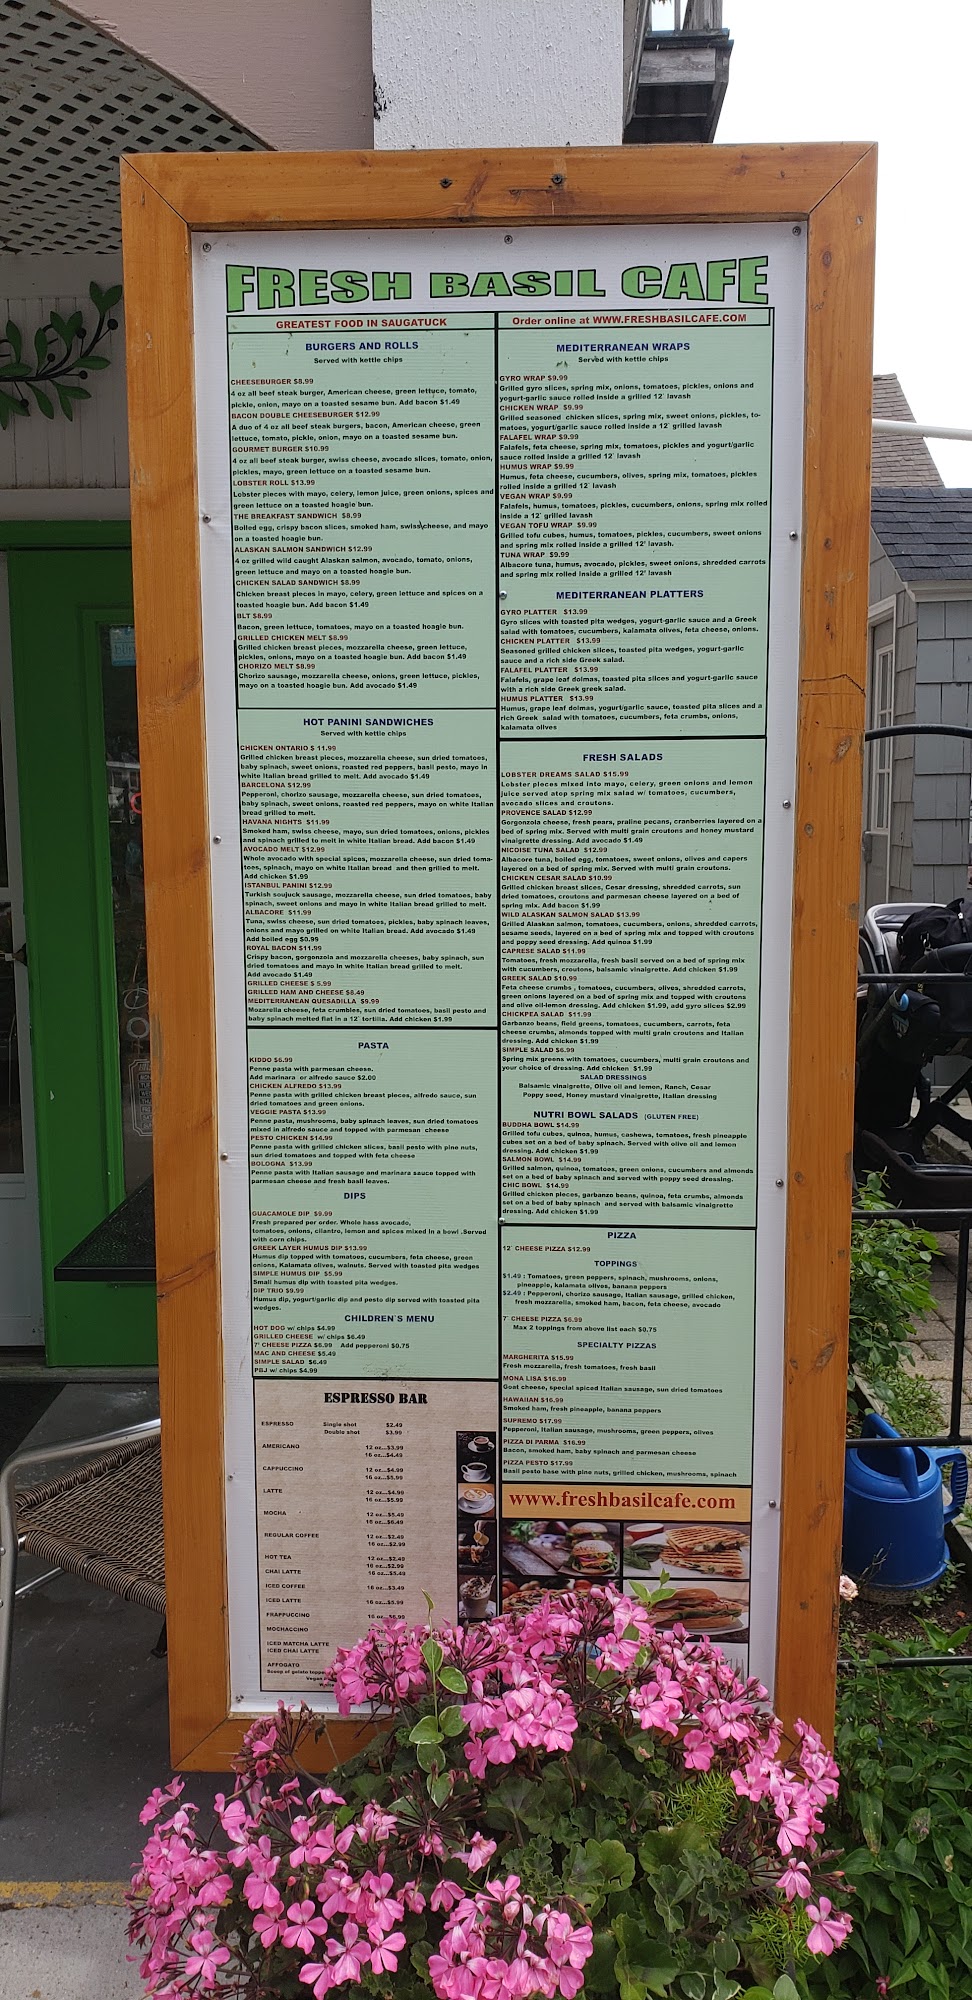 FRESH BASIL CAFE
GREATEST FOOD IN SAUGATUCK
BURGERS AND ROLLS
Served with kettle chips
CHEESEBURGER $8.99
4 oz all beef steak burger, American cheese, green lettuce, tomato,
pickle, onion, mayo on a toasted sesame bun. Add bacon $1.49
BACON DOUBLE CHEESEBURGER $12.99
A duo of 4 oz all beef steak burgers, bacon, American cheese, green
lettuce, tomato, pickle, onion, mayo on a toasted sesame bun.
GOURMET BURGER $10.99
4 oz all beef steak burger, swiss cheese, avocado slices, tomato, onion,
pickles, mayo, green lettuce on a toasted sesame bun.
LOBSTER ROLL $13.99
Lobster pieces with mayo, celery, lemon juice, green onions, spices and
green lettuce on a toasted hoagie bun.
THE BREAKFAST SANDWICH $8.99
Boiled egg, crispy bacon slices, smoked ham, swiss cheese, and mayo
on a toasted hoagie bun.
ALASKAN SALMON SANDWICH $12.99
4 oz grilled wild caught Alaskan salmon, avocado, tomato, onions,
green lettuce and mayo on a toasted hoagie bun.
CHICKEN SALAD SANDWICH $8.99
Chicken breast pieces in mayo, celery, green lettuce and spices on a
toasted hoagie bun. Add bacon $1.49
BLT $8.99
Bacon, green lettuce, tomatoes, mayo on a toasted hoagie bun.
GRILLED CHICKEN MELT $8.99
Grilled chicken breast pieces, mozzarella cheese, green lettuce,
pickles, onions, mayo on a toasted hoagie bun. Add bacon $1.49
CHORIZO MELT $8.99
Chorizo sausage, mozzarella cheese, onions, green lettuce, pickles,
mayo on a toasted hoagie bun. Add avocado $1.49
HOT PANINI SANDWICHES
Served with kettle chips
CHICKEN ONTARIO $ 11.99
Grilled chicken breast pieces, mozzarella cheese, sun dried tomatoes,
baby spinach, sweet onions, roasted red peppers, basil pesto, mayo in
white Italian bread grilled to melt. Add avocado $1.49
BARCELONA $12.99
Pepperoni, chorizo sausage, mozzarella cheese, sun dried tomatoes,
baby spinach, sweet onions, roasted red peppers, mayo on white Italian
bread grilled to melt.
HAVANA NIGHTS $11.99
Smoked ham, swiss cheese, mayo, sun dried tomatoes, onions, pickles
and spinach grilled to melt in white Italian bread. Add bacon $1.49
AVOCADO MELT $12.99
Whole avocado with special spices, mozzarella cheese, sun dried toma-
toes, spinach, mayo on white Italian bread and then grilled to melt.
Add chicken $1.99
ISTANBUL PANINI $12.99
Turkish soujuck sausage, mozzarella cheese, sun dried tomatoes, baby
spinach, sweet onions and mayo in white Italian bread grilled to melt.
ALBACORE $11.99
Tuna, swiss cheese, sun dried tomatoes, pickles, baby spinach leaves,
onions and mayo grilled on white Italian bread. Add avocado $1.49
Add boiled egg $0.99
ROYAL BACON $11.99
Crispy bacon, gorgonzola and mozzarella cheeses, baby spinach, sun
dried tomatoes and mayo in white Italian bread grilled to melt.
Add avocado $1.49
GRILLED CHEESE $ 5.99
GRILLED HAM AND CHEESE $8.49
MEDITERRANEAN QUESADILLA $9.99
Mozarella cheese, feta crumbles, sun dried tomatoes, basil pesto and
baby spinach melted flat in a 12" tortilla. Add chicken $1.99
PASTA
KIDDO $6.99
Penne pasta with parmesan cheese.
Add marinara or alfredo sauce $2.00
CHICKEN ALFREDO $13.99
Penne pasta with grilled chicken breast pieces, alfredo sauce, sun
dried tomatoes and green onions.
VEGGIE PASTA $13.99
Penne pasta, mushrooms, baby spinach leaves, sun dried tomatoes
mixed in alfredo sauce and topped with parmesan cheese
PESTO CHICKEN $14.99
Penne pasta with grilled chicken slices, basil pesto with pine nuts,
sun dried tomatoes and topped with feta cheese
BOLOGNA $13.99
Penne pasta with Italian sausage and marinara sauce topped with
parmesan cheese and fresh basil leaves.
DIPS
GUACAMOLE DIP $9.99
Fresh prepared per order. Whole hass avocado,
tomatoes, onions, cilantro, lemon and spices mixed in a bowl .Served
with corn chips.
GREEK LAYER HUMUS DIP $13.99
Humus dip topped with tomatoes, cucumbers, feta cheese, green
onions, Kalamata olives, walnuts. Served with toasted pita wedges
SIMPLE HUMUS DIP $5.99
Small humus dip with toasted pita wedges.
DIP TRIO $9.99
Humus dip, yogurt/garlic dip and pesto dip served with toasted pita
wedges.
CHILDREN`S MENU
HOT DOG w/ chips $4.99
GRILLED CHEESE w/ chips $6.49
7" CHEESE PIZZA $6.99 Add pepperoni $0.75
MAC AND CHEESE $5.49
SIMPLE SALAD $6.49
PBJ w/ chips $4.99
ESPRESSO BAR
ESPRESSO Single shot $2.49
Double shot $3.99
AMERICANO 12 oz...$3.99
16 oz...$4.49
CAPPUCCINO 12 oz...$4.99
16 oz...$5.99
LATTE 12 oz...$4.99
16 oz...$5.99
MOCHA 12 oz...$5.49
16 oz...$6.49
REGULAR COFFEE 12 oz...$2.49
16 oz...$2.99
HOT TEA 12 oz...$2.49
16 oz...$2.99
CHAI LATTE 16 oz...$5.49
ICED COFFEE 16 oz...$3.49
ICED LATTE 16 oz...$5.99
FRAPPUCCINO 16 oz...$6.99
MOCHACCINO 16 oz...
ICED MATCHA LATTE
ICED CHAI LATTE
AFFOGATO
Scoop of gelato
Vegan
Order online at WWW.FRESHBASILCAFE.COM
MEDITERRANEAN WRAPS
Served with kettle chips
GYRO WRAP $9.99
Grilled gyro slices, spring mix, onions, tomatoes, pickles, onions and
yogurt-garlic sauce rolled inside a grilled 12" lavash
CHICKEN WRAP $9.99
Grilled seasoned chicken slices, spring mix, sweet onions, pickles, to-
matoes, yogurt/garlic sauce rolled inside a grilled 12" lavash
FALAFEL WRAP $9.99
Falafels, feta cheese, spring mix, tomatoes, pickles and yogurt/garlic
sauce rolled inside a grilled 12" lavash
HUMUS WRAP $9.99
Humus, feta cheese, cucumbers, olives, spring mix, tomatoes, pickles
rolled inside a grilled 12" lavash
VEGAN WRAP $9.99
Falafels, humus, tomatoes, pickles, cucumbers, onions, spring mix rolled
inside a 12" grilled lavash
VEGAN TOFU WRAP $9.99
Grilled tofu cubes, humus, tomatoes, pickles, cucumbers, sweet onions
and spring mix rolled inside a grilled 12" lavash.
TUNA WRAP $9.99
Albacore tuna, humus, avocado, pickles, sweet onions, shredded carrots
and spring mix rolled inside a grilled 12" lavash
MEDITERRANEAN PLATTERS
GYRO PLATTER $13.99
Gyro slices with toasted pita wedges, yogurt-garlic sauce and a Greek
salad with tomatoes, cucumbers, kalamata olives, feta cheese, onions.
CHICKEN PLATTER $13.99
Seasoned grilled chicken slices, toasted pita wedges, yogurt-garlic
sauce and a rich side Greek salad.
FALAFEL PLATTER $13.99
Falafels, grape leaf dolmas, toasted pita slices and yogurt-garlic sauce
with a rich side Greek greek salad.
HUMUS PLATTER $13.99
Humus, grape leaf dolmas, yogurt/garlic sauce, toasted pita slices and a
rich Greek salad with tomatoes, cucumbers, feta crumbs, onions,
kalamata olives
FRESH SALADS
LOBSTER DREAMS SALAD $15.99
Lobster pieces mixed into mayo, celery, green onions and lemon
juice served atop spring mix salad w/ tomatoes, cucumbers,
avocado slices and croutons.
PROVENCE SALAD $12.99
Gorgonzola cheese, fresh pears, praline pecans, cranberries layered on a
bed of spring mix. Served with multi grain croutons and honey mustard
vinaigrette dressing. Add avocado $1.49
NICOISE TUNA SALAD $12.99
Albacore tuna, boiled egg, tomatoes, sweet onions, olives and capers
layered on a bed of spring mix. Served with multi grain croutons.
CHICKEN CESAR SALAD $10.99
Grilled chicken breast slices, Cesar dressing, shredded carrots, sun
dried tomatoes, croutons and parmesan cheese layered on a bed of
spring mix. Add bacon $1.99
WILD ALASKAN SALMON SALAD $13.99
Grilled Alaskan salmon, tomatoes, cucumbers, onions, shredded carrots,
sesame seeds, layered on a bed of spring mix and topped with croutons
and poppy seed dressing. Add quinoa $1.99
CAPRESE SALAD $11.99
Tomatoes, fresh mozzarella, fresh basil served on a bed of spring mix
with cucumbers, croutons, balsamic vinaigrette. Add chicken $1.99
GREEK SALAD $10.99
Feta cheese crumbs , tomatoes, cucumbers, olives, shredded carrots,
green onions layered on a bed of spring mix and topped with croutons
and olive oil-lemon dressing. Add chicken $1.99, add gyro slices $2.99
CHICKPEA SALAD $11.99
Garbanzo beans, field greens, tomatoes, cucumbers, carrots, feta
cheese crumbs, almonds topped with multi grain croutons and Italian
dressing. Add chicken $1.99
SIMPLE SALAD $6.99
Spring mix greens with tomatoes, cucumbers, multi grain croutons and
your choice of dressing. Add chicken $1.99
SALAD DRESSINGS
Balsamic vinaigrette, Olive oil and lemon, Ranch, Cesar
Poppy seed, Honey mustard vinaigrette, Italian dressing
NUTRI BOWL SALADS (GLUTEN FREE)
BUDDHA BOWL $14.99
Grilled tofu cubes, quinoa, humus, cashews, tomatoes, fresh pineapple
cubes set on a bed of baby spinach. Served with olive oil and lemon
dressing. Add chicken $1.99
SALMON BOWL $14.99
Grilled salmon, quinoa, tomatoes, green onions, cucumbers and almonds
set on a bed of baby spinach and served with poppy seed dressing.
CHIC BOWL $14.99
Grilled chicken pieces, garbanzo beans, quinoa, feta crumbs, almonds
set on a bed of baby spinach and served with balsamic vinaigrette
dressing. Add chicken $1.99
PIZZA
12" CHEESE PIZZA $12.99
TOPPINGS
$1.49 : Tomatoes, green peppers, spinach, mushrooms, onions,
pineapple, kalamata olives, banana peppers
$2.49 : Pepperoni, chorizo sausage, Italian sausage, grilled chicken,
fresh mozzarella, smoked ham, bacon, feta cheese, avocado
7" CHEESE PIZZA $6.99
Max 2 toppings from above list each $0.75
SPECIALTY PIZZAS
MARGHERITA $15.99
Fresh mozzarella, fresh tomatoes, fresh basil
MONA LISA $16.99
Goat cheese, special spiced Italian sausage, sun dried tomatoes
HAWAIIAN $16.99
Smoked ham, fresh pineapple, banana peppers
SUPREMO $17.99
Pepperoni, Italian sausage, mushrooms, green peppers, olives
PIZZA DI PARMA $16.99
Bacon, smoked ham, baby spinach and parmesan cheese
PIZZA PESTO $17.99
Basil pesto base with pine nuts, grilled chicken, mushrooms, spinach
www.freshbasilcafe.com